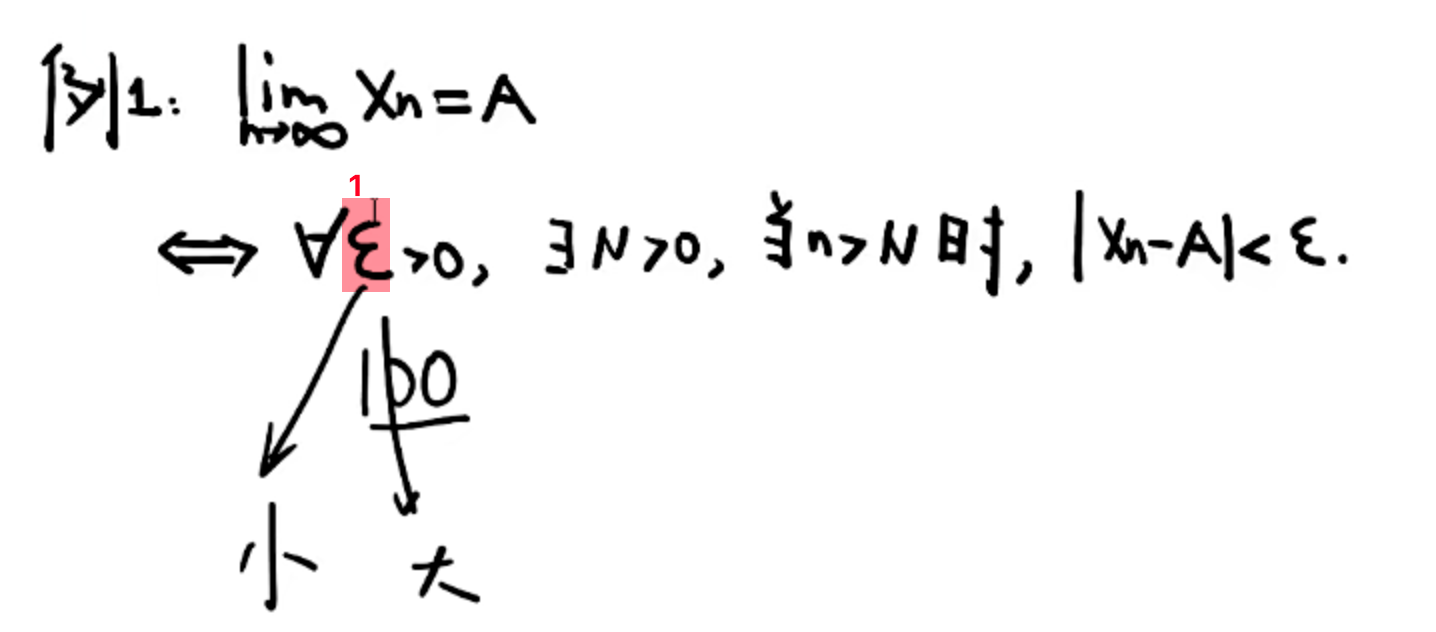 例1: lim Xn=A
n→∞
1
⟺ ∀ε>0, ∃N>0, 当n>N时, |Xn-A|<ε.
100
小 大